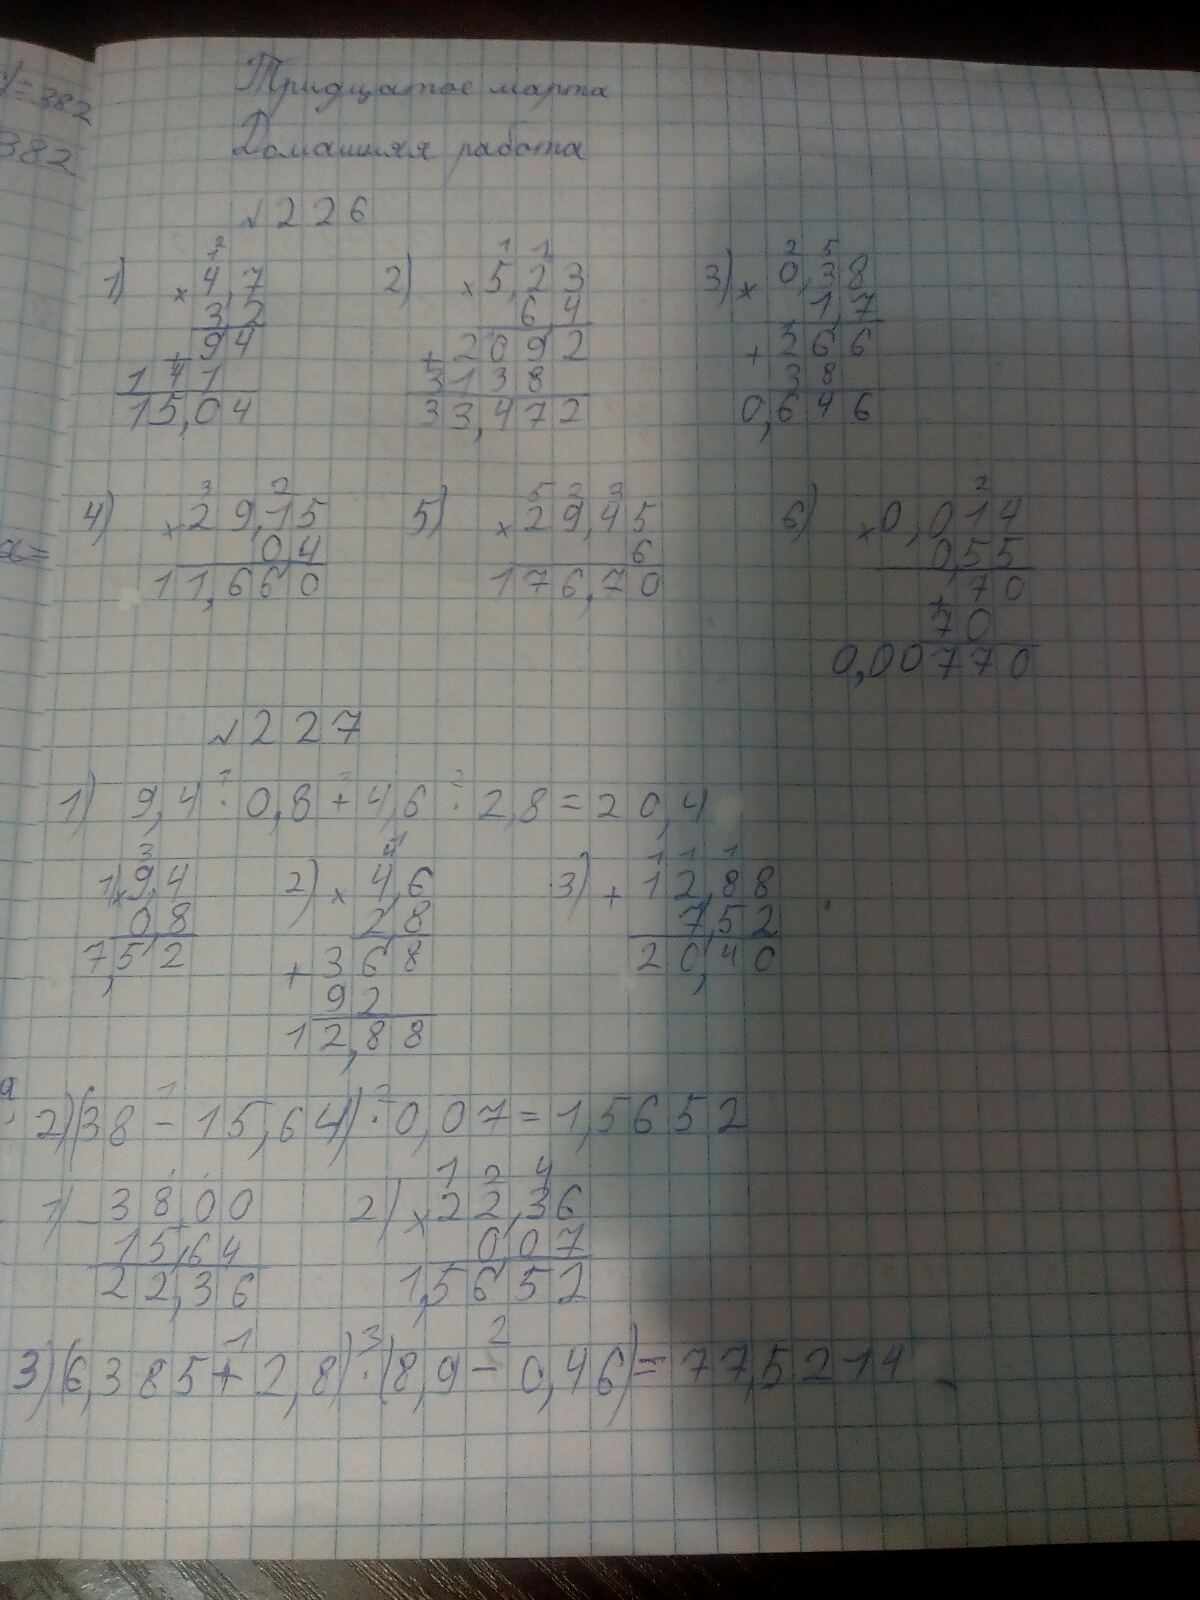 y=382
382
Тридцатое марта
Домашняя работа
№226
1) 2) 3)
× 4,7 × 5,23 × 0,38
3,2 6,4 1,7
+ 94 + 2092 + 266
141 3138 38
15,04 33,472 0,646
4) 5) 6)
× 29,15 × 29,45 × 0,014
0,4 6 0,55
11,660 176,70 + 70
70
0,00770
x=
№227
1) 9,4 · 0,8 + 4,6 · 2,8 = 20,4
1) × 9,4 2) × 4,6 3) + 12,88
0,8 2,8 7,52
7,52 + 368 20,40
92
12,88
2) (38 - 15,64) · 0,07 = 1,5652
1) - 38,00 2) × 22,36
15,64 0,07
22,36 1,5652
3) (6,385 + 2,8) · (8,9 - 0,46) = 77,5214